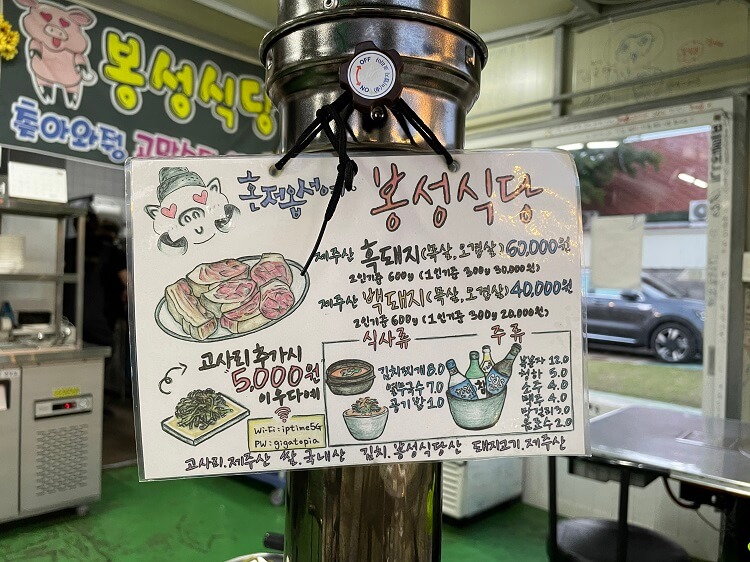 봉성식당
OFF
ON
혼저옵서예
봉성식당
제주산 흑돼지(목살,오겹살) 60,000원
2인기준 600g (1인기준 300g 30,000원)
제주산 백돼지(목살,오겹살) 40,000원
2인기준 600g (1인기준 300g 20,000원)
고사리 추가시
5,000원
이우다예
Wi-Fi: iptime5G
PW: gigatopia
식사류
김치찌개 8.0
열무국수 7.0
공기밥 1.0
주류
복분자 12.0
청하 5.0
소주 4.0
맥주 4.0
막걸리 3.0
음료수 2.0
고사리.제주산 쌀.국내산 김치.봉성식당산 돼지고기.제주산